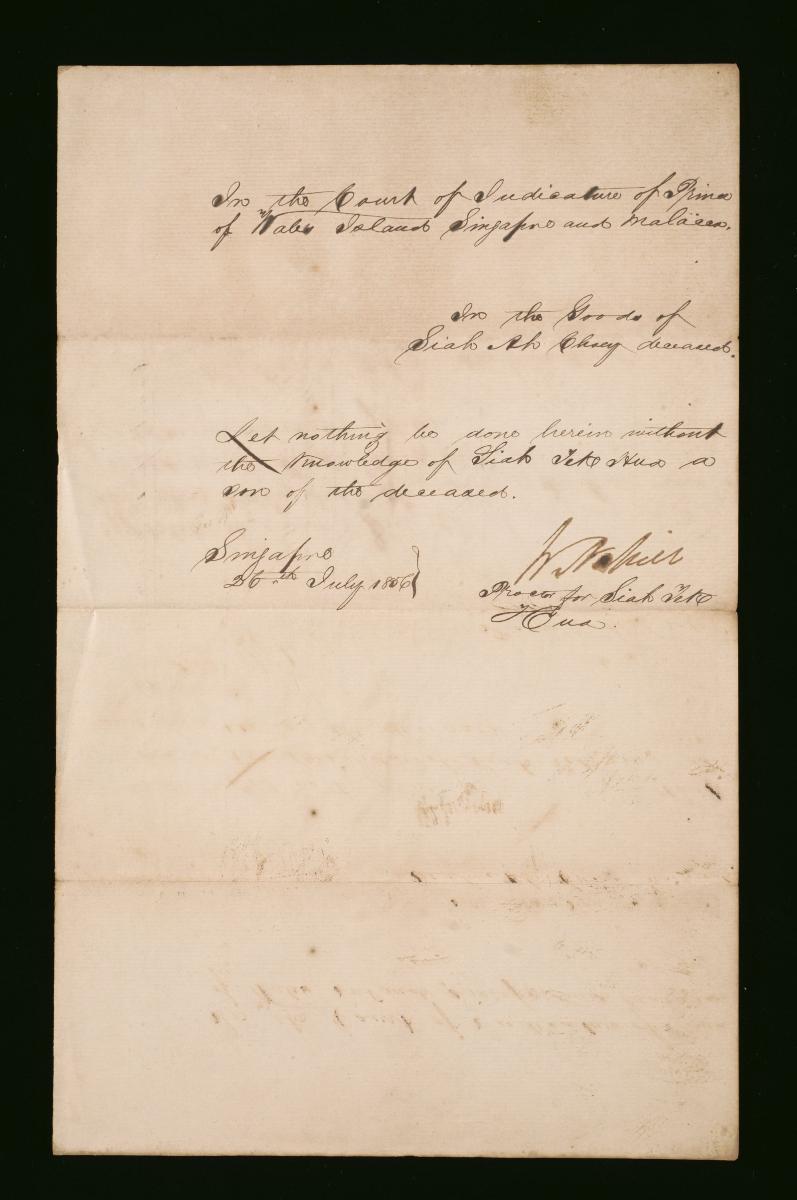 In the Court of Judicature of Prince
of Wales Island Singapore and Malacca.
In the Goods of
Siah Ah Choey deceased.
Let nothing be done herein without
the Knowledge of Siah Tek Hua a
son of the deceased.
Singapore
26th July 1856
Proctor for Siah Tek
Hua.